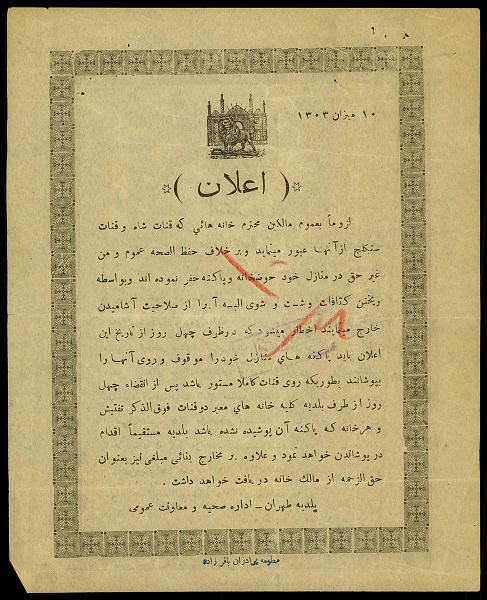 ۱۰ میزان ۱۳۰۳
( اعلان )
لزوماً بعموم مالکین محترم خانه هائی که قنات شاه و قنات
سنگلج از آنها عبور مینماید و بر خلاف حفظ الصحه عموم و من
غیر حق در منازل خود حوضخانه و پاکنه حفر نموده اند و بواسطه
ریختن کثافات و شست و شوی البسه آبرا از صلاحیت آشامیدن
خارج مینمایند اخطار میشود که در ظرف چهل روز از تاریخ این
اعلان باید پاکنه های منازل خود را موقوف و روی آنها را
بپوشانند بطوریکه روی قنات کاملا مستور باشد پس از انقضاء چهل
روز از طرف بلدیه کلیه خانه های معبر دو قنات فوق الذکر تفتیش
و هر خانه که پاکنه آن پوشیده نشده باشد بلدیه مستقیماً اقدام
در پوشاندن خواهد نمود و علاوه بر مخارج بنائی مبلغی نیز بعنوان
حق الزحمه از مالك خانه دریافت خواهد داشت .
بلدیه طهران – اداره صحیه و معاونت عمومی
مطبعه برادران باقر زاده